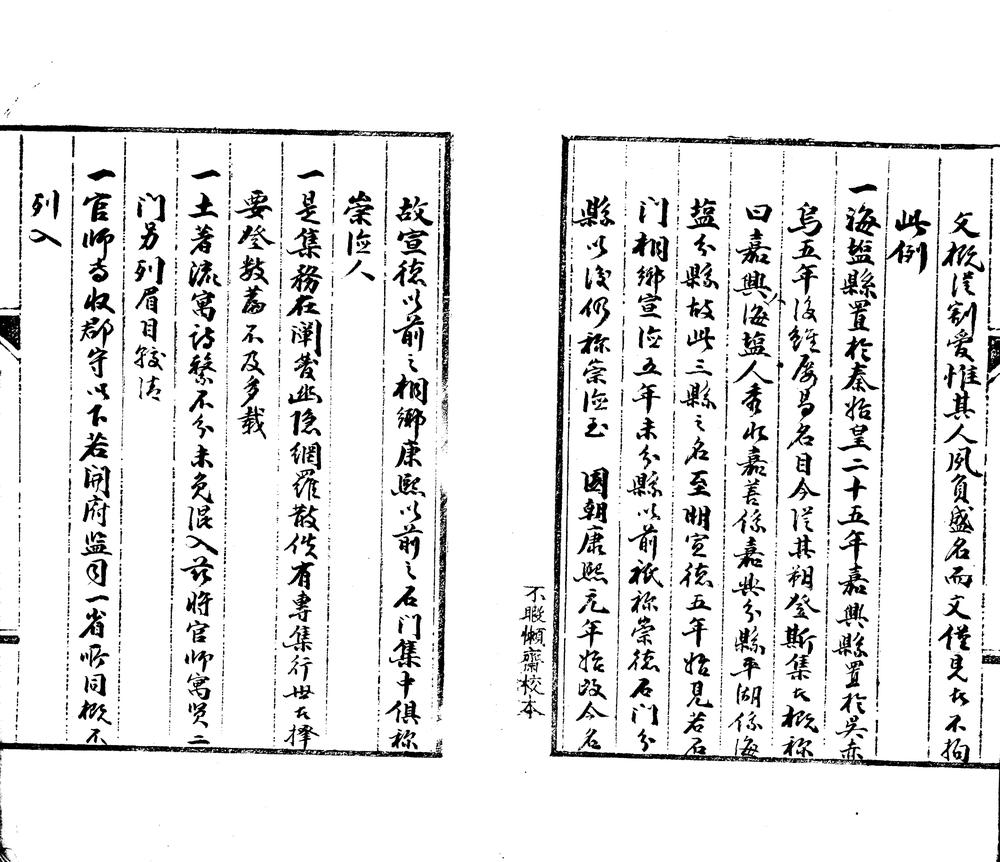 文概從割愛惟其人夙負盛名而文僅見者不拘
此例
一海盐縣置於秦始皇二十五年嘉興縣置於吳赤
烏五年後雖屡易名目今從其朔登斯集者概称
曰嘉興海盐人秀水嘉善係嘉興分縣平湖係海
盐分縣故此三縣之名至明宣德五年始見若石
门桐鄉宣德五年未分縣以前衹称崇德石门分
縣以後仍称崇德至 國朝康熙元年始改今名
不暇懶齋校本
故宣德以前之桐鄉康熙以前之石门集中俱称
崇德人
一是集務在闡發幽隐網羅散佚有專集行世者擇
要登数篇不及多載
一土著流寓诗繫不分未免混入兹將官师寓贤二
门另列眉目较清
一官师专收郡守以下若開府监司一省所同概不
列入